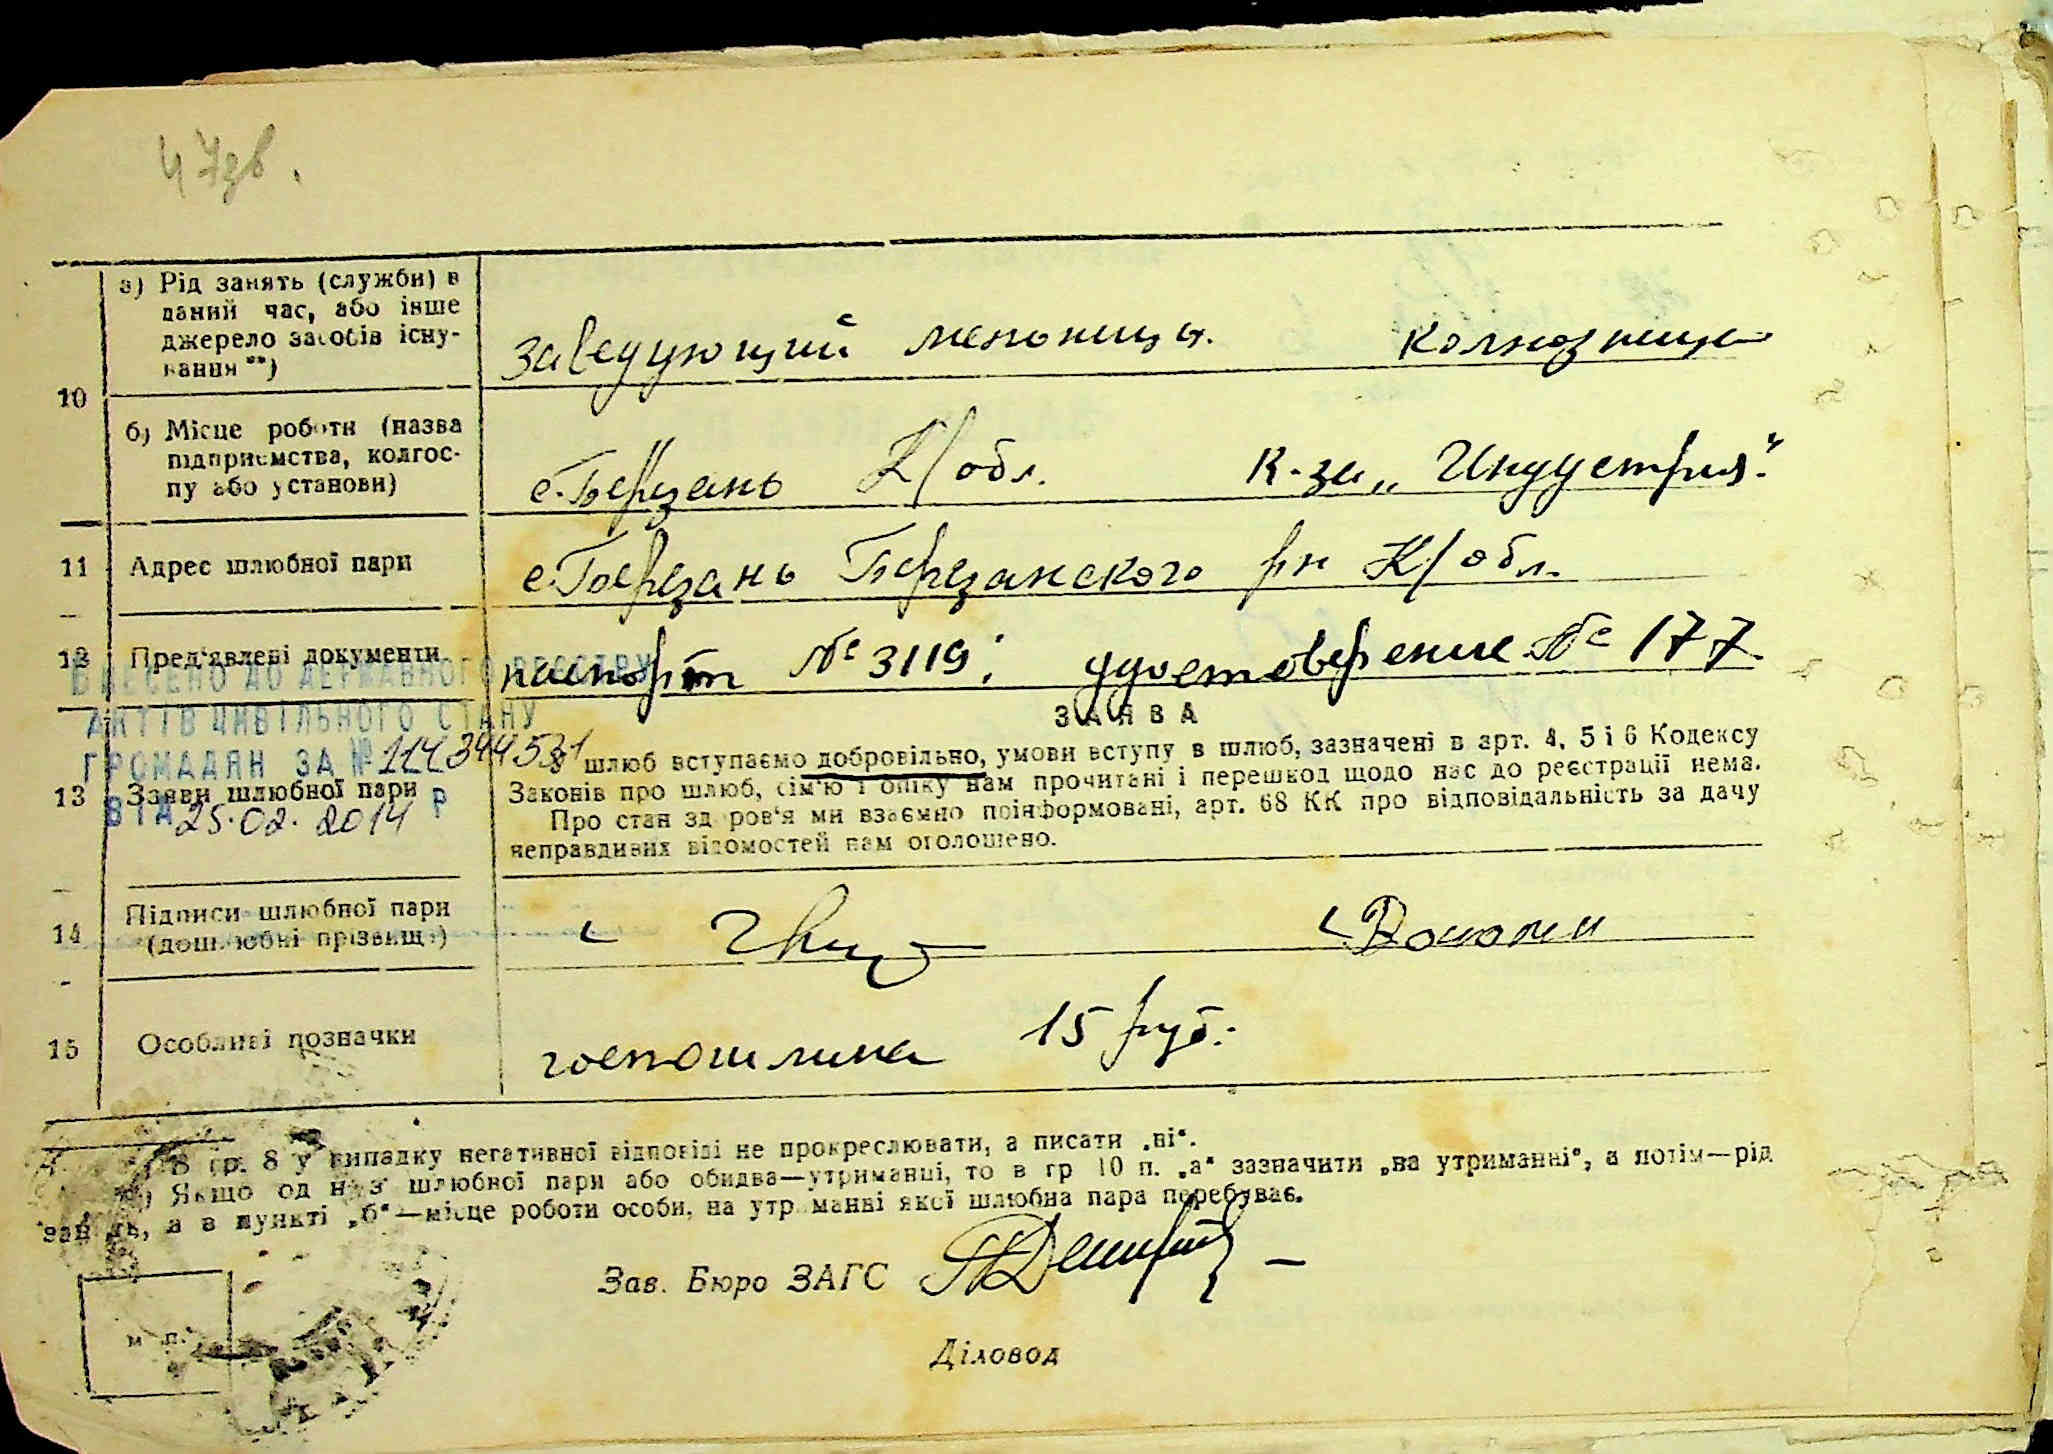 47зв.
а) Рід занять (служби) в
даний час, або інше
джерело засобів існу-
вання **)
заведующий колхозница
10
б) Місце роботи (назва
підприємства, колгос-
пу або установи)
с. Березань К/обл. К-за „Индустрия".
11 Адрес шлюбної пари
с. Березань Березанского рн К/обл.
12 Пред'явлені документи
паспорт № 3119; удостоверение № 177.
ВНЕСЕНО ДО ДЕРЖАВНОГО РЕЄСТРУ
АКТІВ ЦИВІЛЬНОГО СТАНУ
ГРОМАДЯН ЗА № 114344531
ВІД 25.02.2014 р
13 Заяви шлюбної пари
ЗАЯВА
В шлюб вступаємо добровільно, умови вступу в шлюб, зазначені в арт. 4, 5 і 6 Кодексу
Законів про шлюб, сім'ю і опіку нам прочитані і перешкод щодо нас до реєстрації нема.
Про стан здоров'я ми взаємно поінформовані, арт. 68 КК про відповідальність за дачу
неправдивих відомостей нам оголошено.
14 Підписи шлюбної пари
(дошлюбні прізвища)
15 Особливі позначки
госпошлина 15 руб.
*) В гр. 8 у випадку негативної відповіді не прокреслювати, а писати „ні".
**) Якщо один з шлюбної пари або обидва—утриманці, то в гр 10 п. „а" зазначити „на утриманні", а потім—рід
занять, а в пункті „б"—місце роботи особи, на утриманні якої шлюбна пара перебуває.
Зав. Бюро ЗАГС
м. п.
Діловод